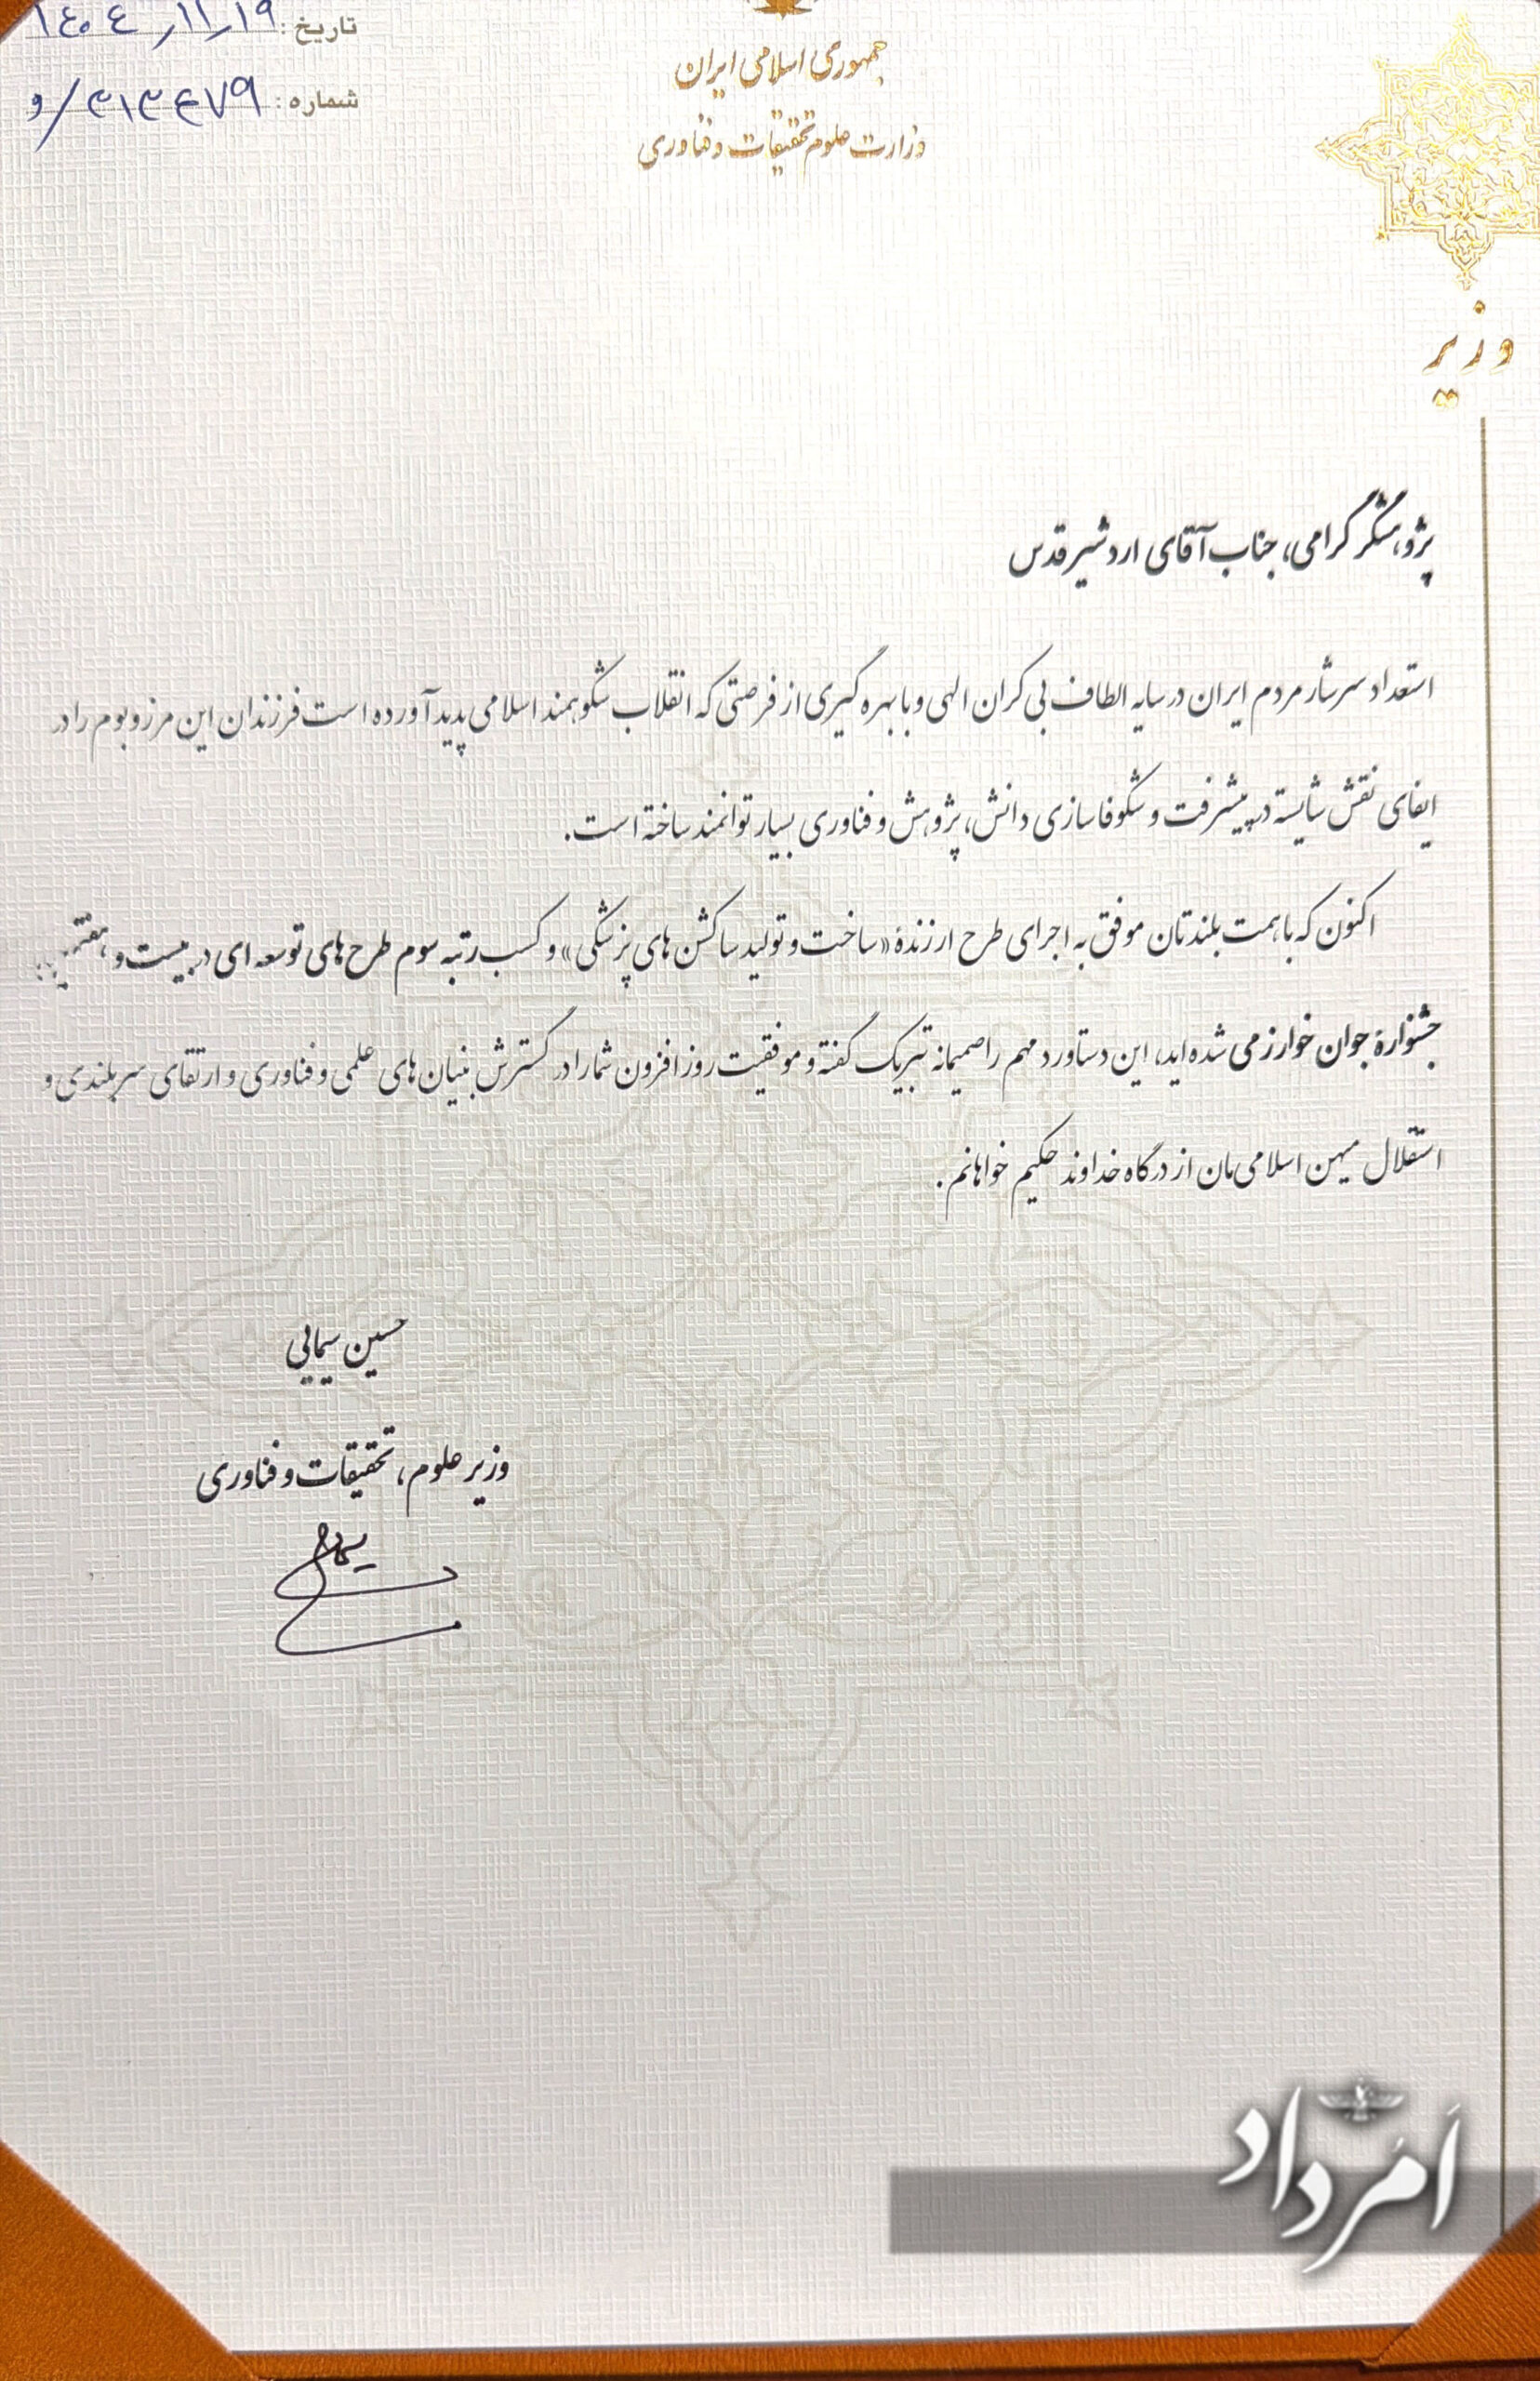 تاریخ: ۱٤۰٤/۱۱/۱۹
شماره: ۳۱۳٤۷۹/و
جمهوری اسلامی ایران
وزارت علوم تحقیقات و فناوری
وزیر
پژوهشگر گرامی، جناب آقای اردشیر قدس
استعداد سرشار مردم ایران در سایه الطاف بی کران الهی و با بهره گیری از فرصتی که انقلاب شکوهمند اسلامی پدید آورده است فرزندان این مرز و بوم را در
ایفای نقش شایسته در پیشرفت و شکوفاسازی دانش، پژوهش و فناوری بسیار توانمند ساخته است.
اکنون که با همت بلندتان موفق به اجرای طرح ارزندۀ «ساخت و تولید ساکشن های پزشکی» و کسب رتبه سوم طرح های توسعه ای در بیست و هفتمین
جشنوارۀ جوان خوارزمی شده اید، این دستاورد مهم را صمیمانه تبریک گفته و موفقیت روز افزون شما را در گسترش بنیان های علمی و فناوری و ارتقای سربلندی و
استقلال میهن اسلامی مان از درگاه خداوند حکیم خواهانم.
حسین سیمایی
وزیر علوم، تحقیقات و فناوری
اَمُرداد